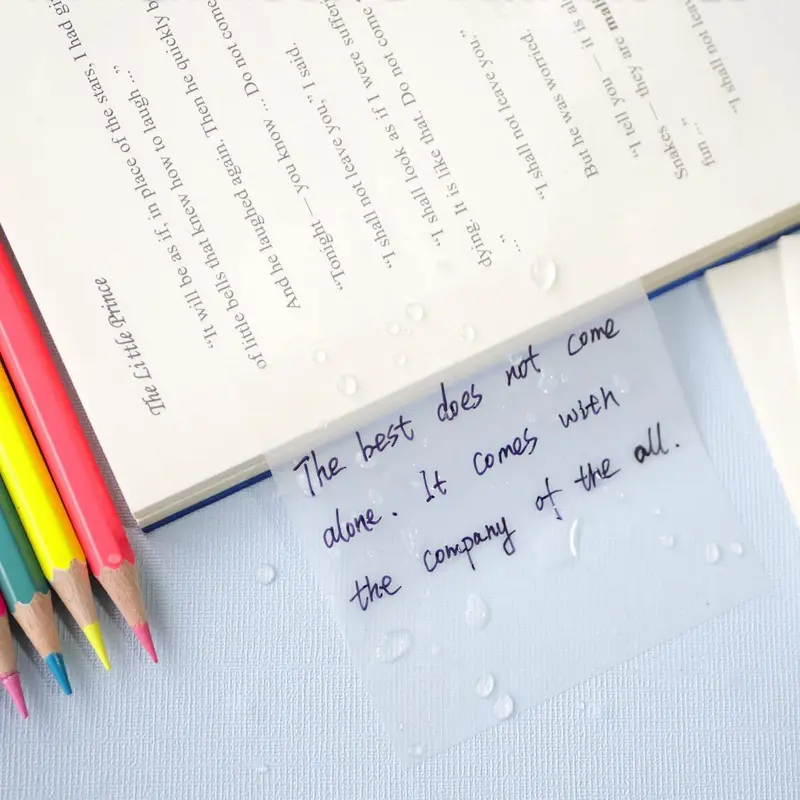 The Little Prince
"It will be as if, in place of the stars, I had gi
of little bells that knew how to laugh ..."
And he laughed again. Then he quickly b
"Tonight — you know ... Do not come
"I shall not leave you," I said.
"I shall look as if I were sufferi
dying. It is like that. Do not come
..."
"I shall not leave you."
But he was worried.
"I tell you — it is al
Snakes — they are mali
fun ..."
"I shall not leav
The best does not come
alone. It comes with
the company of the all.